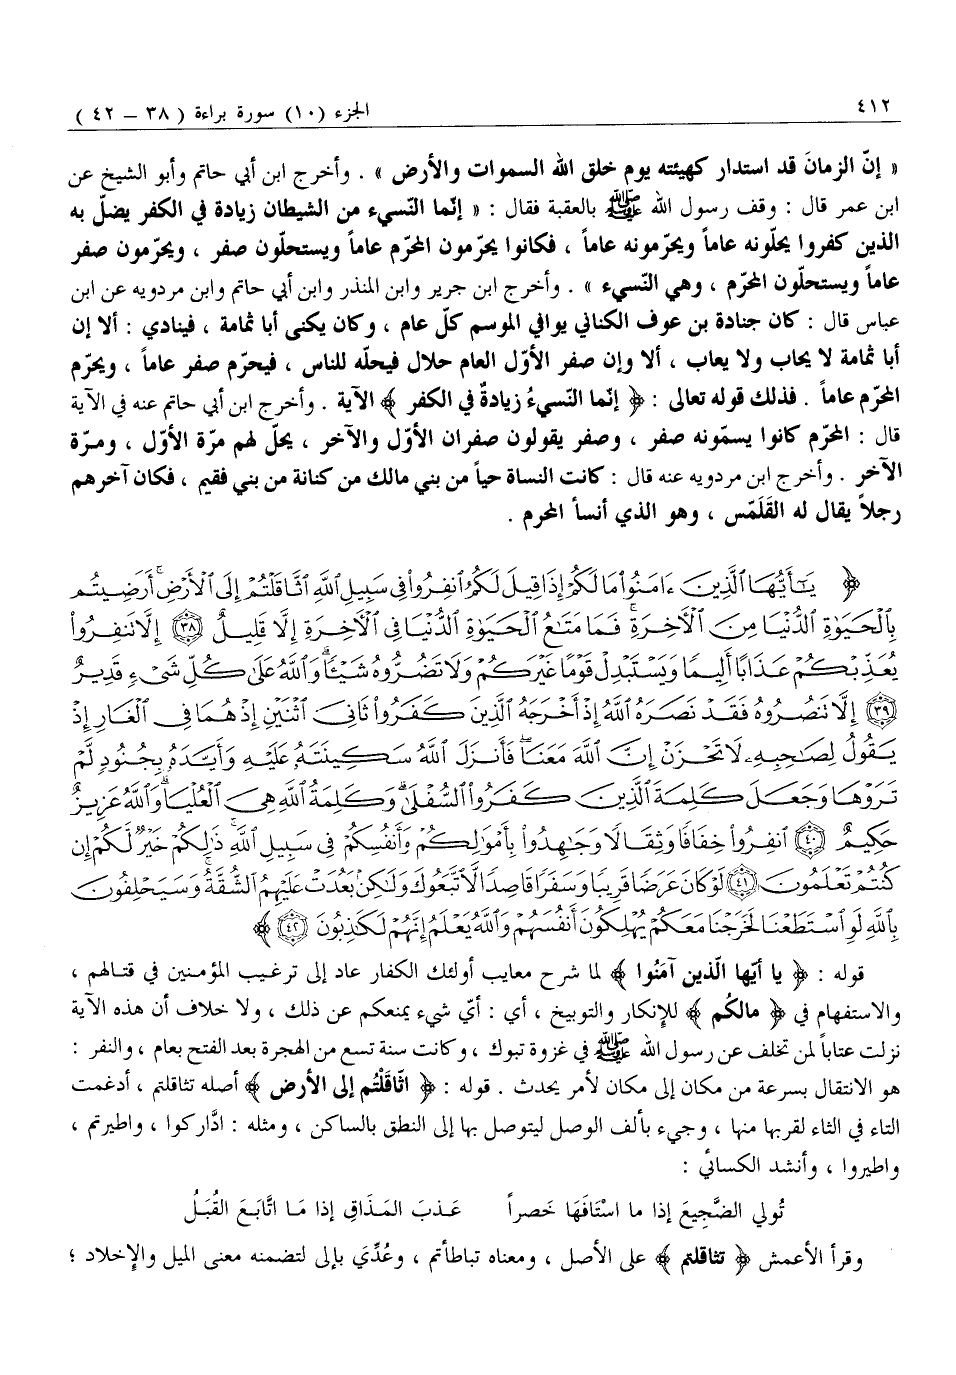 ٤١٢
الجزء (١٠) سورة براءة ( ٣٨ – ٤٢ )
« إنّ الزمانَ قد استدار كهيئته يوم خلق الله السموات والأرض » . وأخرج ابن أبي حاتم وأبو الشيخ عن
ابن عمر قال : وقف رسول الله ﷺ بالعقبة فقال : « إنّما النّسيء من الشيطان زيادة في الكفر يضلّ به
الذين كفروا يحلّونه عاماً ويحرّمونه عاماً ، فكانوا يحرّمون المحرّم عاماً ويستحلون صفر ، ويحرّمون صفر
عاماً ويستحلّون المحرّم ، وهي النّسيء » . وأخرج ابن جرير وابن المنذر وابن أبي حاتم وابن مردويه عن ابن
عباس قال : كان جنادة بن عوف الكناني يوافي الموسم كلّ عام ، وكان يكنى أبا ثمامة ، فينادي : ألا إن
أبا ثمامة لا يحاب ولا يعاب ، ألا وإن صفر الأوّل العام حلال فيحلّه للناس ، فيحرّم صفر عاماً ، ويحرّم
المحرّم عاماً . فذلك قوله تعالى : ﴿ إنّما النّسيءُ زيادةٌ في الكفر ﴾ الآية . وأخرج ابن أبي حاتم عنه في الآية
قال : المحرّم كانوا يسمّونه صفر ، وصفر يقولون صفران الأوّل والآخر ، يحلّ لهم مرّة الأوّل ، ومرّة
الآخر . وأخرج ابن مردويه عنه قال : كانت النساة حياً من بني مالك من كنانة من بني فقيم ، فكان آخرهم
رجلاً يقال له القَلَمّس ، وهو الذي أنسأ المحرم .
﴿ يَٰٓأَيُّهَا ٱلَّذِينَ ءَامَنُوا۟ مَا لَكُمْ إِذَا قِيلَ لَكُمُ ٱنفِرُوا۟ فِى سَبِيلِ ٱللَّهِ ٱثَّاقَلْتُمْ إِلَى ٱلْأَرْضِ ۚ أَرَضِيتُم
بِٱلْحَيَوٰةِ ٱلدُّنْيَا مِنَ ٱلْءَاخِرَةِ ۚ فَمَا مَتَٰعُ ٱلْحَيَوٰةِ ٱلدُّنْيَا فِى ٱلْءَاخِرَةِ إِلَّا قَلِيلٌ ٣٨ إِلَّا تَنفِرُوا۟
يُعَذِّبْكُمْ عَذَابًا أَلِيمًا وَيَسْتَبْدِلْ قَوْمًا غَيْرَكُمْ وَلَا تَضُرُّوهُ شَيْـًٔا ۗ وَٱللَّهُ عَلَىٰ كُلِّ شَىْءٍ قَدِيرٌ
٣٩ إِلَّا تَنصُرُوهُ فَقَدْ نَصَرَهُ ٱللَّهُ إِذْ أَخْرَجَهُ ٱلَّذِينَ كَفَرُوا۟ ثَانِىَ ٱثْنَيْنِ إِذْ هُمَا فِى ٱلْغَارِ إِذْ
يَقُولُ لِصَٰحِبِهِۦ لَا تَحْزَنْ إِنَّ ٱللَّهَ مَعَنَا ۖ فَأَنزَلَ ٱللَّهُ سَكِينَتَهُۥ عَلَيْهِ وَأَيَّدَهُۥ بِجُنُودٍ لَّمْ
تَرَوْهَا وَجَعَلَ كَلِمَةَ ٱلَّذِينَ كَفَرُوا۟ ٱلسُّفْلَىٰ ۗ وَكَلِمَةُ ٱللَّهِ هِىَ ٱلْعُلْيَا ۗ وَٱللَّهُ عَزِيزٌ
حَكِيمٌ ٤٠ ٱنفِرُوا۟ خِفَافًا وَثِقَالًا وَجَٰهِدُوا۟ بِأَمْوَٰلِكُمْ وَأَنفُسِكُمْ فِى سَبِيلِ ٱللَّهِ ۚ ذَٰلِكُمْ خَيْرٌ لَّكُمْ إِن
كُنتُمْ تَعْلَمُونَ ٤١ لَوْ كَانَ عَرَضًا قَرِيبًا وَسَفَرًا قَاصِدًا لَّٱتَّبَعُوكَ وَلَٰكِنۢ بَعُدَتْ عَلَيْهِمُ ٱلشُّقَّةُ ۚ وَسَيَحْلِفُونَ
بِٱللَّهِ لَوِ ٱسْتَطَعْنَا لَخَرَجْنَا مَعَكُمْ يُهْلِكُونَ أَنفُسَهُمْ وَٱللَّهُ يَعْلَمُ إِنَّهُمْ لَكَٰذِبُونَ ٤٢ ﴾
قوله : ﴿ يا أيّها الّذين آمَنُوا ﴾ لما شرح معايب أولئك الكفار عاد إلى ترغيب المؤمنين في قتالهم ،
والاستفهام في ﴿ مالكُم ﴾ للإنكار والتوبيخ ، أي : أيّ شيء يمنعكم عن ذلك ، ولا خلاف أن هذه الآية
نزلت عتاباً لمن تخلف عن رسول الله ﷺ في غزوة تبوك ، وكانت سنة تسع من الهجرة بعد الفتح بعام ، والنفر :
هو الانتقال بسرعة من مكان إلى مكان لأمر يحدث . قوله : ﴿ اثّاقَلْتُم إلى الأرض ﴾ أصله تثاقلتم ، أدغمت
التاء في الثاء لقربها منها ، وجيء بألف الوصل ليتوصل بها إلى النطق بالساكن ، ومثله : ادَّاركوا ، واطيرتم ،
واطيروا ، وأنشد الكسائي :
تُولي الضَّجِيعَ إذا ما اسْتَافَهَا خَصراً عَذبَ المَذَاقِ إذا مَا اتَّابَعَ القُبَلُ
وقرأ الأعمش ﴿ تثاقلتم ﴾ على الأصل ، ومعناه تباطأتم ، وعُدِّيَ بإلى لتضمنه معنى الميل والإخلاد ؛